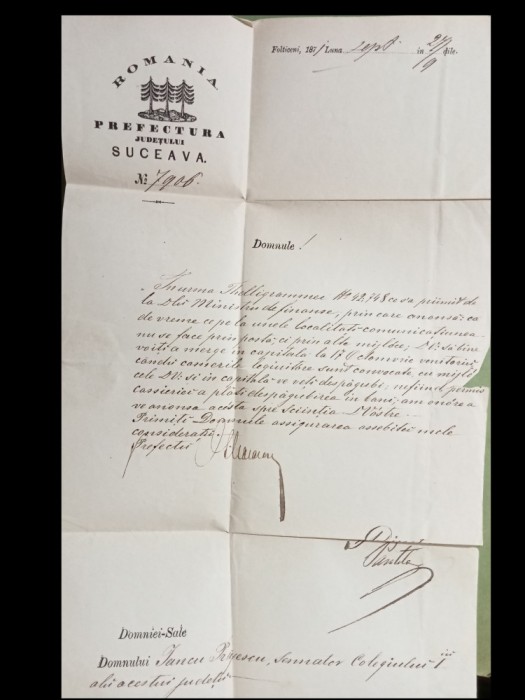 ROMANIA
PREFECTURA
JUDEȚULUI
SUCEAVA.
№ 7906.
Folticeni, 187 Luna Sept. in 27/9 dile.
Domnule!
In urma Thelligrammeo № 42,748 ce sa priimit de
la Dlui Ministru de finanse, prin care ononsă: ca
de vreme ce pe la unele localitati comunicatiunea
nu se face prin posta, ci prin alte mijloce, DV: sa bine
voiti a merge in capitala la 17 Octomvrie venitoriu
candu camerile legiuitore sunt convocate, cu mijlo
cele DV: si in capitala ve veti despagubi, nefiind permis
casieriei a plati despagubirea in bani; am onorea
ve anonsa acesta spre sciintia D Vostre.
Primiti Domnule assigurarea osebitei mele
consideratii.
Prefectu
Domniei-Sale
Domnului Iancu, Senator Colegiului I iii
alu acestui județu